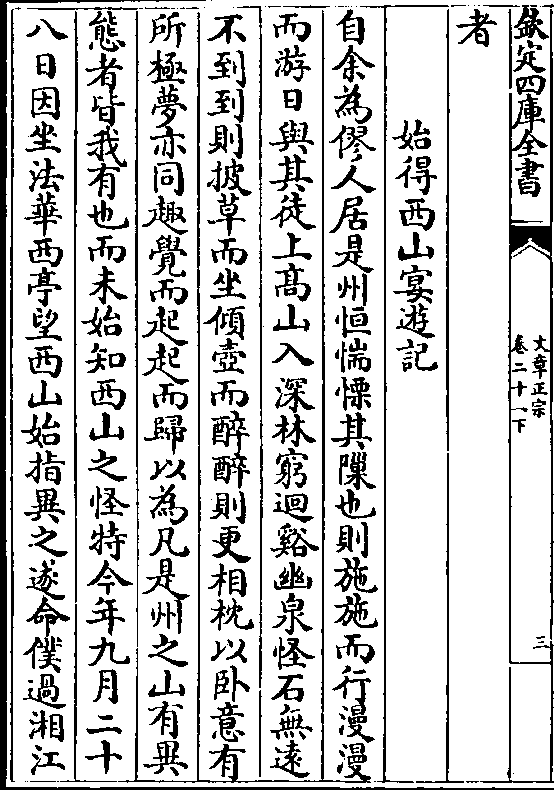 欽定四庫全書
文章正宗
卷二十一下
三
者
始得西山宴遊記
自余為僇人居是州恒惴慄其隟也則施施而行漫漫
而游日與其徒上髙山入深林窮迴谿幽泉怪石無逺
不到到則披草而坐傾壺而醉醉則更相枕以卧意有
所極夢亦同趣覺而起起而歸以為凡是州之山有異
態者皆我有也而未始知西山之怪特今年九月二十
八日因坐法華西亭望西山始指異之遂命僕過湘江